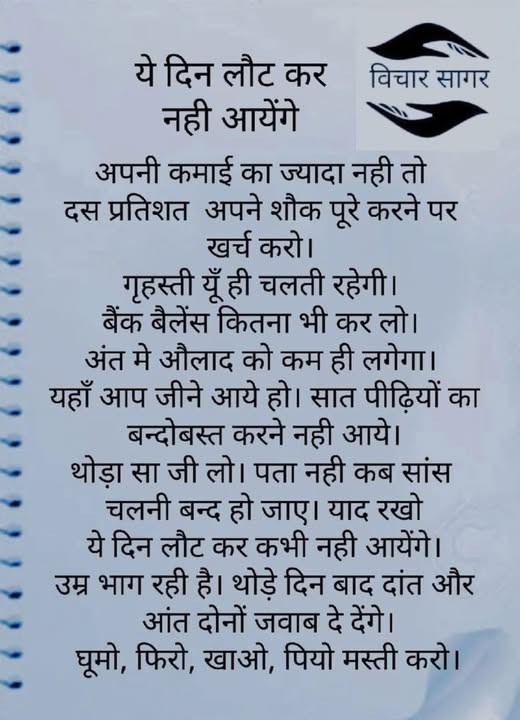 ये दिन लौट कर
नही आयेंगे
विचार सागर
अपनी कमाई का ज्यादा नही तो
दस प्रतिशत अपने शौक पूरे करने पर
खर्च करो।
गृहस्ती यूँ ही चलती रहेगी।
बैंक बैलेंस कितना भी कर लो।
अंत मे औलाद को कम ही लगेगा।
यहाँ आप जीने आये हो। सात पीढ़ियों का
बन्दोबस्त करने नही आये।
थोड़ा सा जी लो। पता नही कब सांस
चलनी बन्द हो जाए। याद रखो
ये दिन लौट कर कभी नही आयेंगे।
उम्र भाग रही है। थोड़े दिन बाद दांत और
आंत दोनों जवाब दे देंगे।
घूमो, फिरो, खाओ, पियो मस्ती करो।